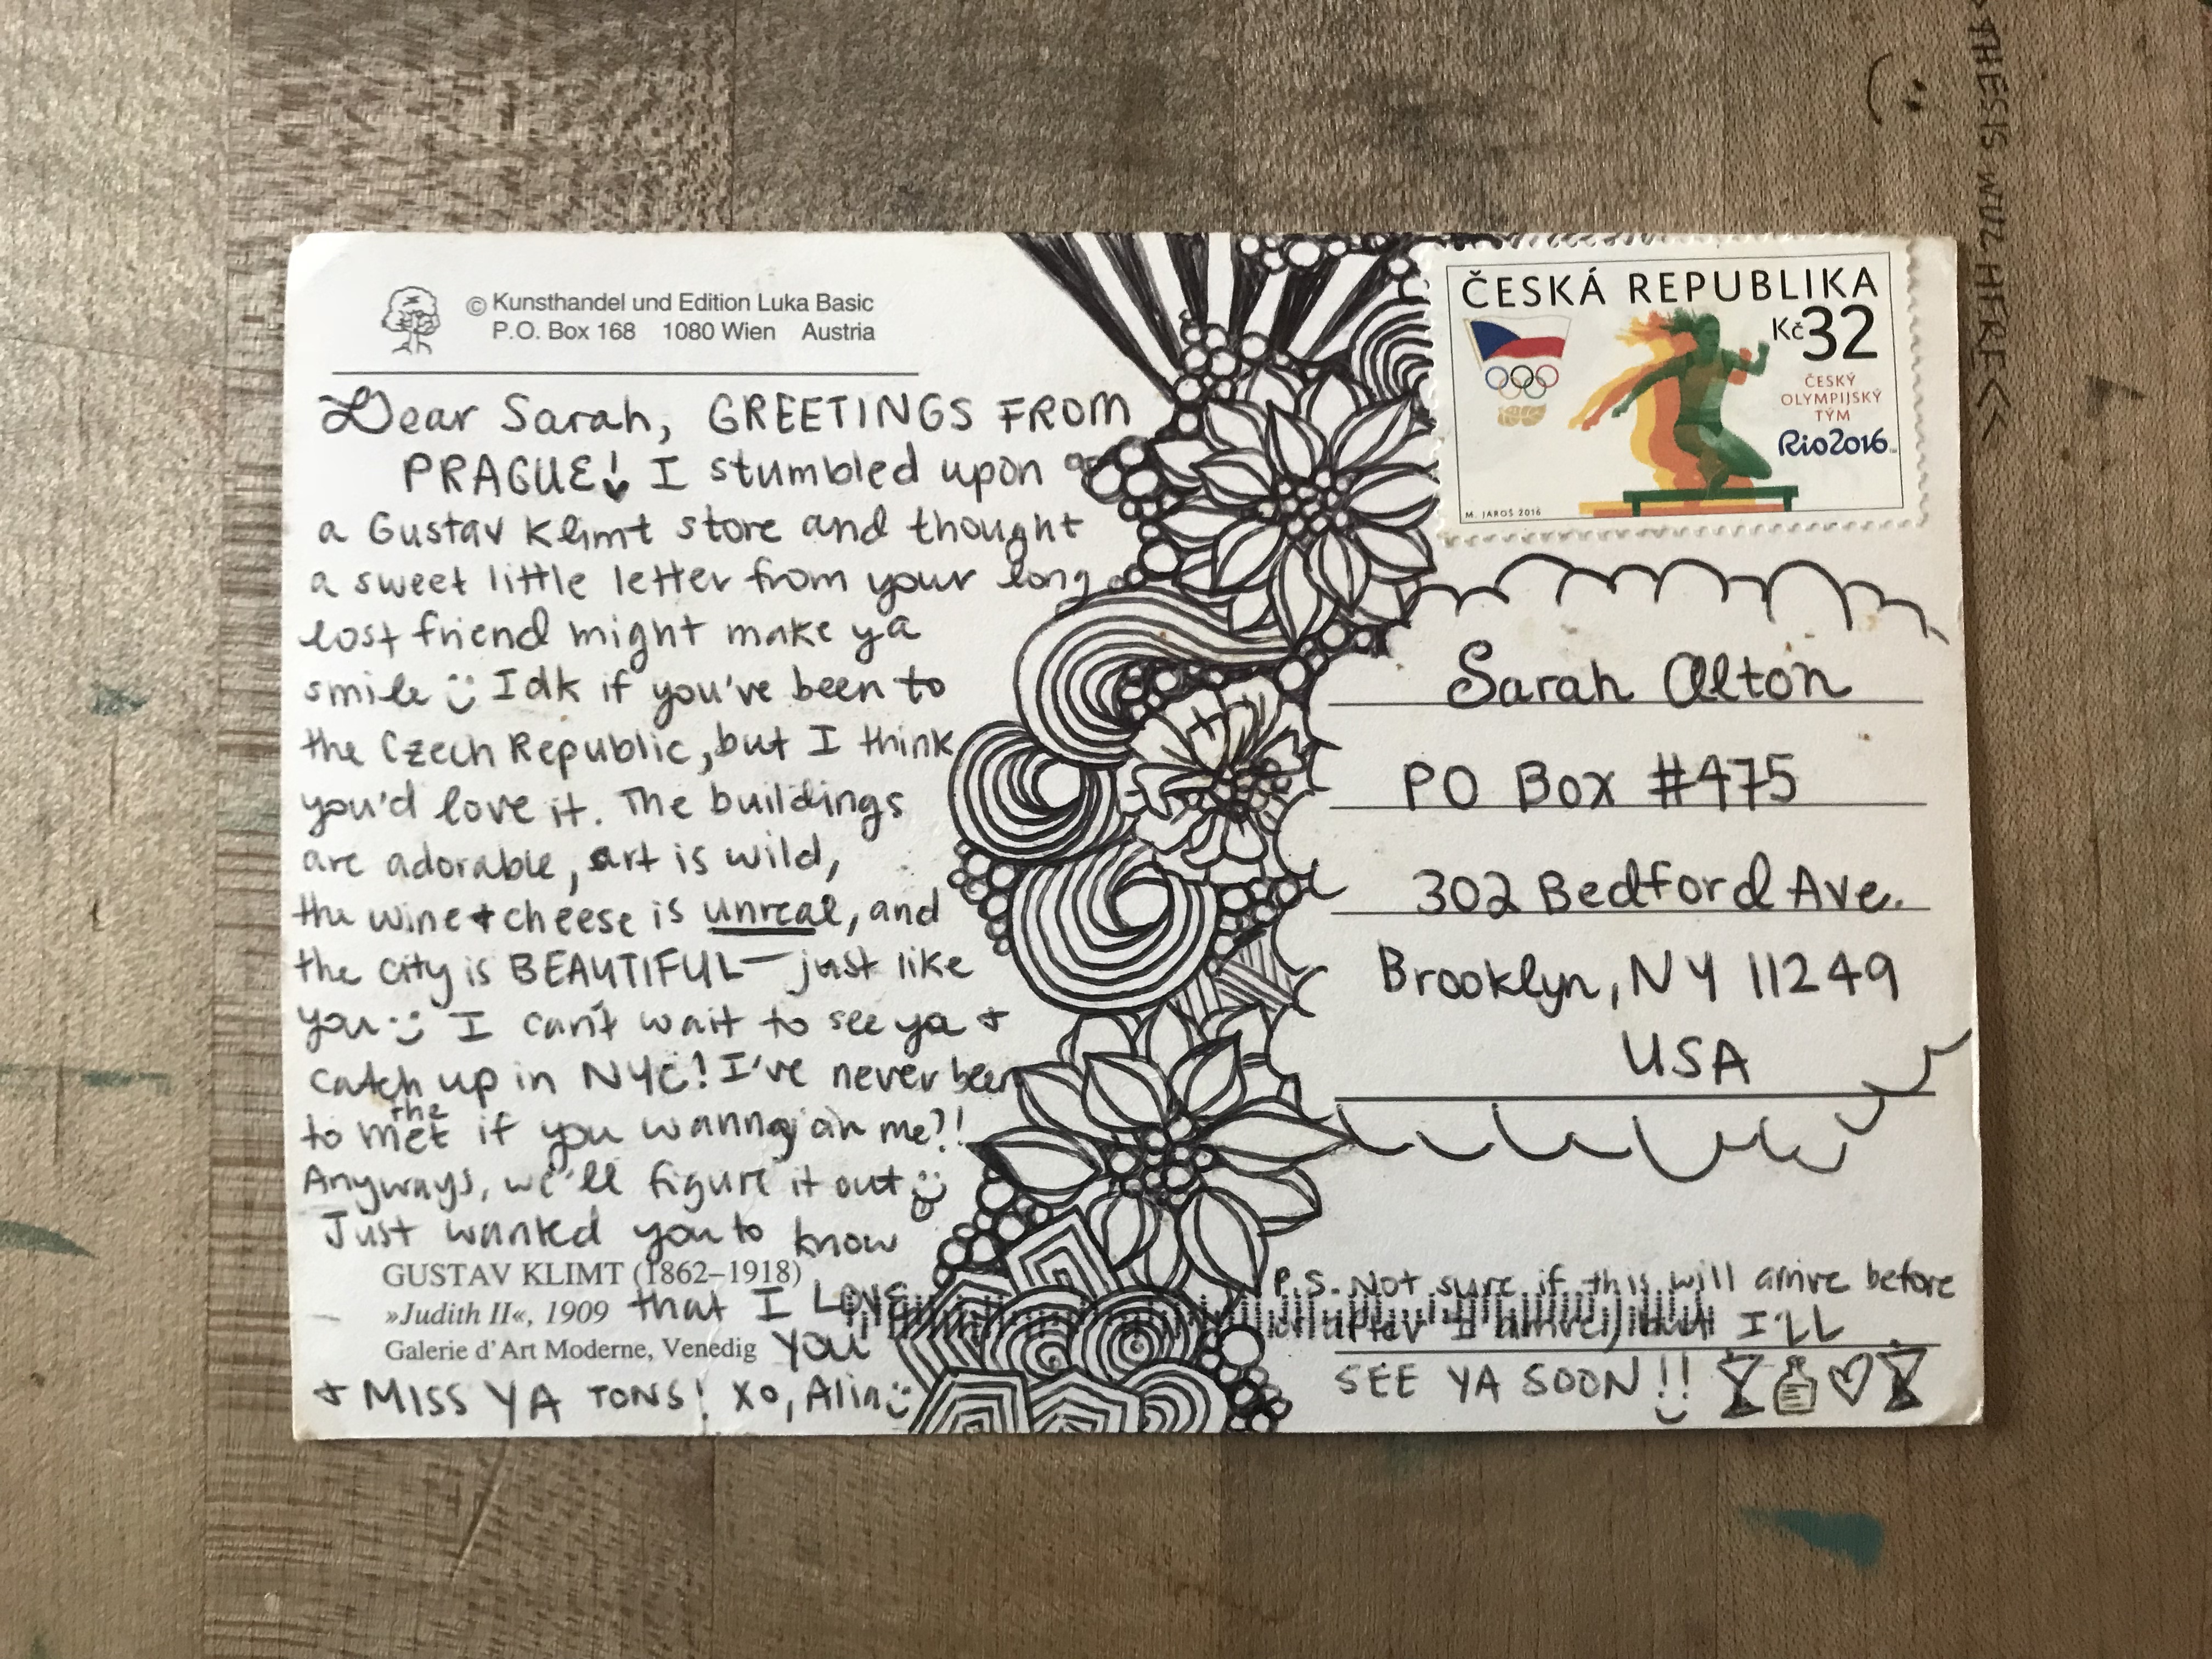 © Kunsthandel und Edition Luka Basic
P.O. Box 168 1080 Wien Austria
Dear Sarah, GREETINGS FROM
PRAGUE! I stumbled upon
a Gustav Klimt store and thought
a sweet little letter from your long
lost friend might make ya
smile :) Idk if you've been to
the Czech Republic, but I think
you'd love it. The buildings
are adorable, art is wild,
the wine + cheese is unreal, and
the city is BEAUTIFUL — just like
you :) I can't wait to see ya +
catch up in NYC! I've never been
to the met if you wanna join me?!
Anyways, we'll figure it out :)
Just wanted you to know
GUSTAV KLIMT (1862–1918)
»Judith II«, 1909
Galerie d'Art Moderne, Venedig
that I LOVE
YOU
+ MISS YA TONS! XO, Alin :)
ČESKÁ REPUBLIKA
Kč 32
ČESKÝ
OLYMPIJSKÝ
TÝM
Rio2016
M. JAROŠ 2016
Sarah Alton
PO Box #475
302 Bedford Ave.
Brooklyn, NY 11249
USA
P.S. Not sure if this will arrive before
or after I arrive, but I'LL
SEE YA SOON!!
THESIS WUZ HERE <<